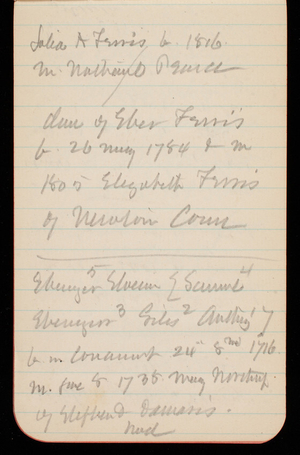 Julia A Ferris b. 1816.
m. Nathaniel Pearce
dau of Eben Ferris
b. 26 may 1784 & m
1805 Elizabeth Ferris
of Newtown Conn
Ebenezer 5 Samuel 4
Ebenezer 3 Giles 2 Anthony 1
b in 24th 8 mo 1716
m. 8 1738 may Northrup
of Stephen & Damaris.